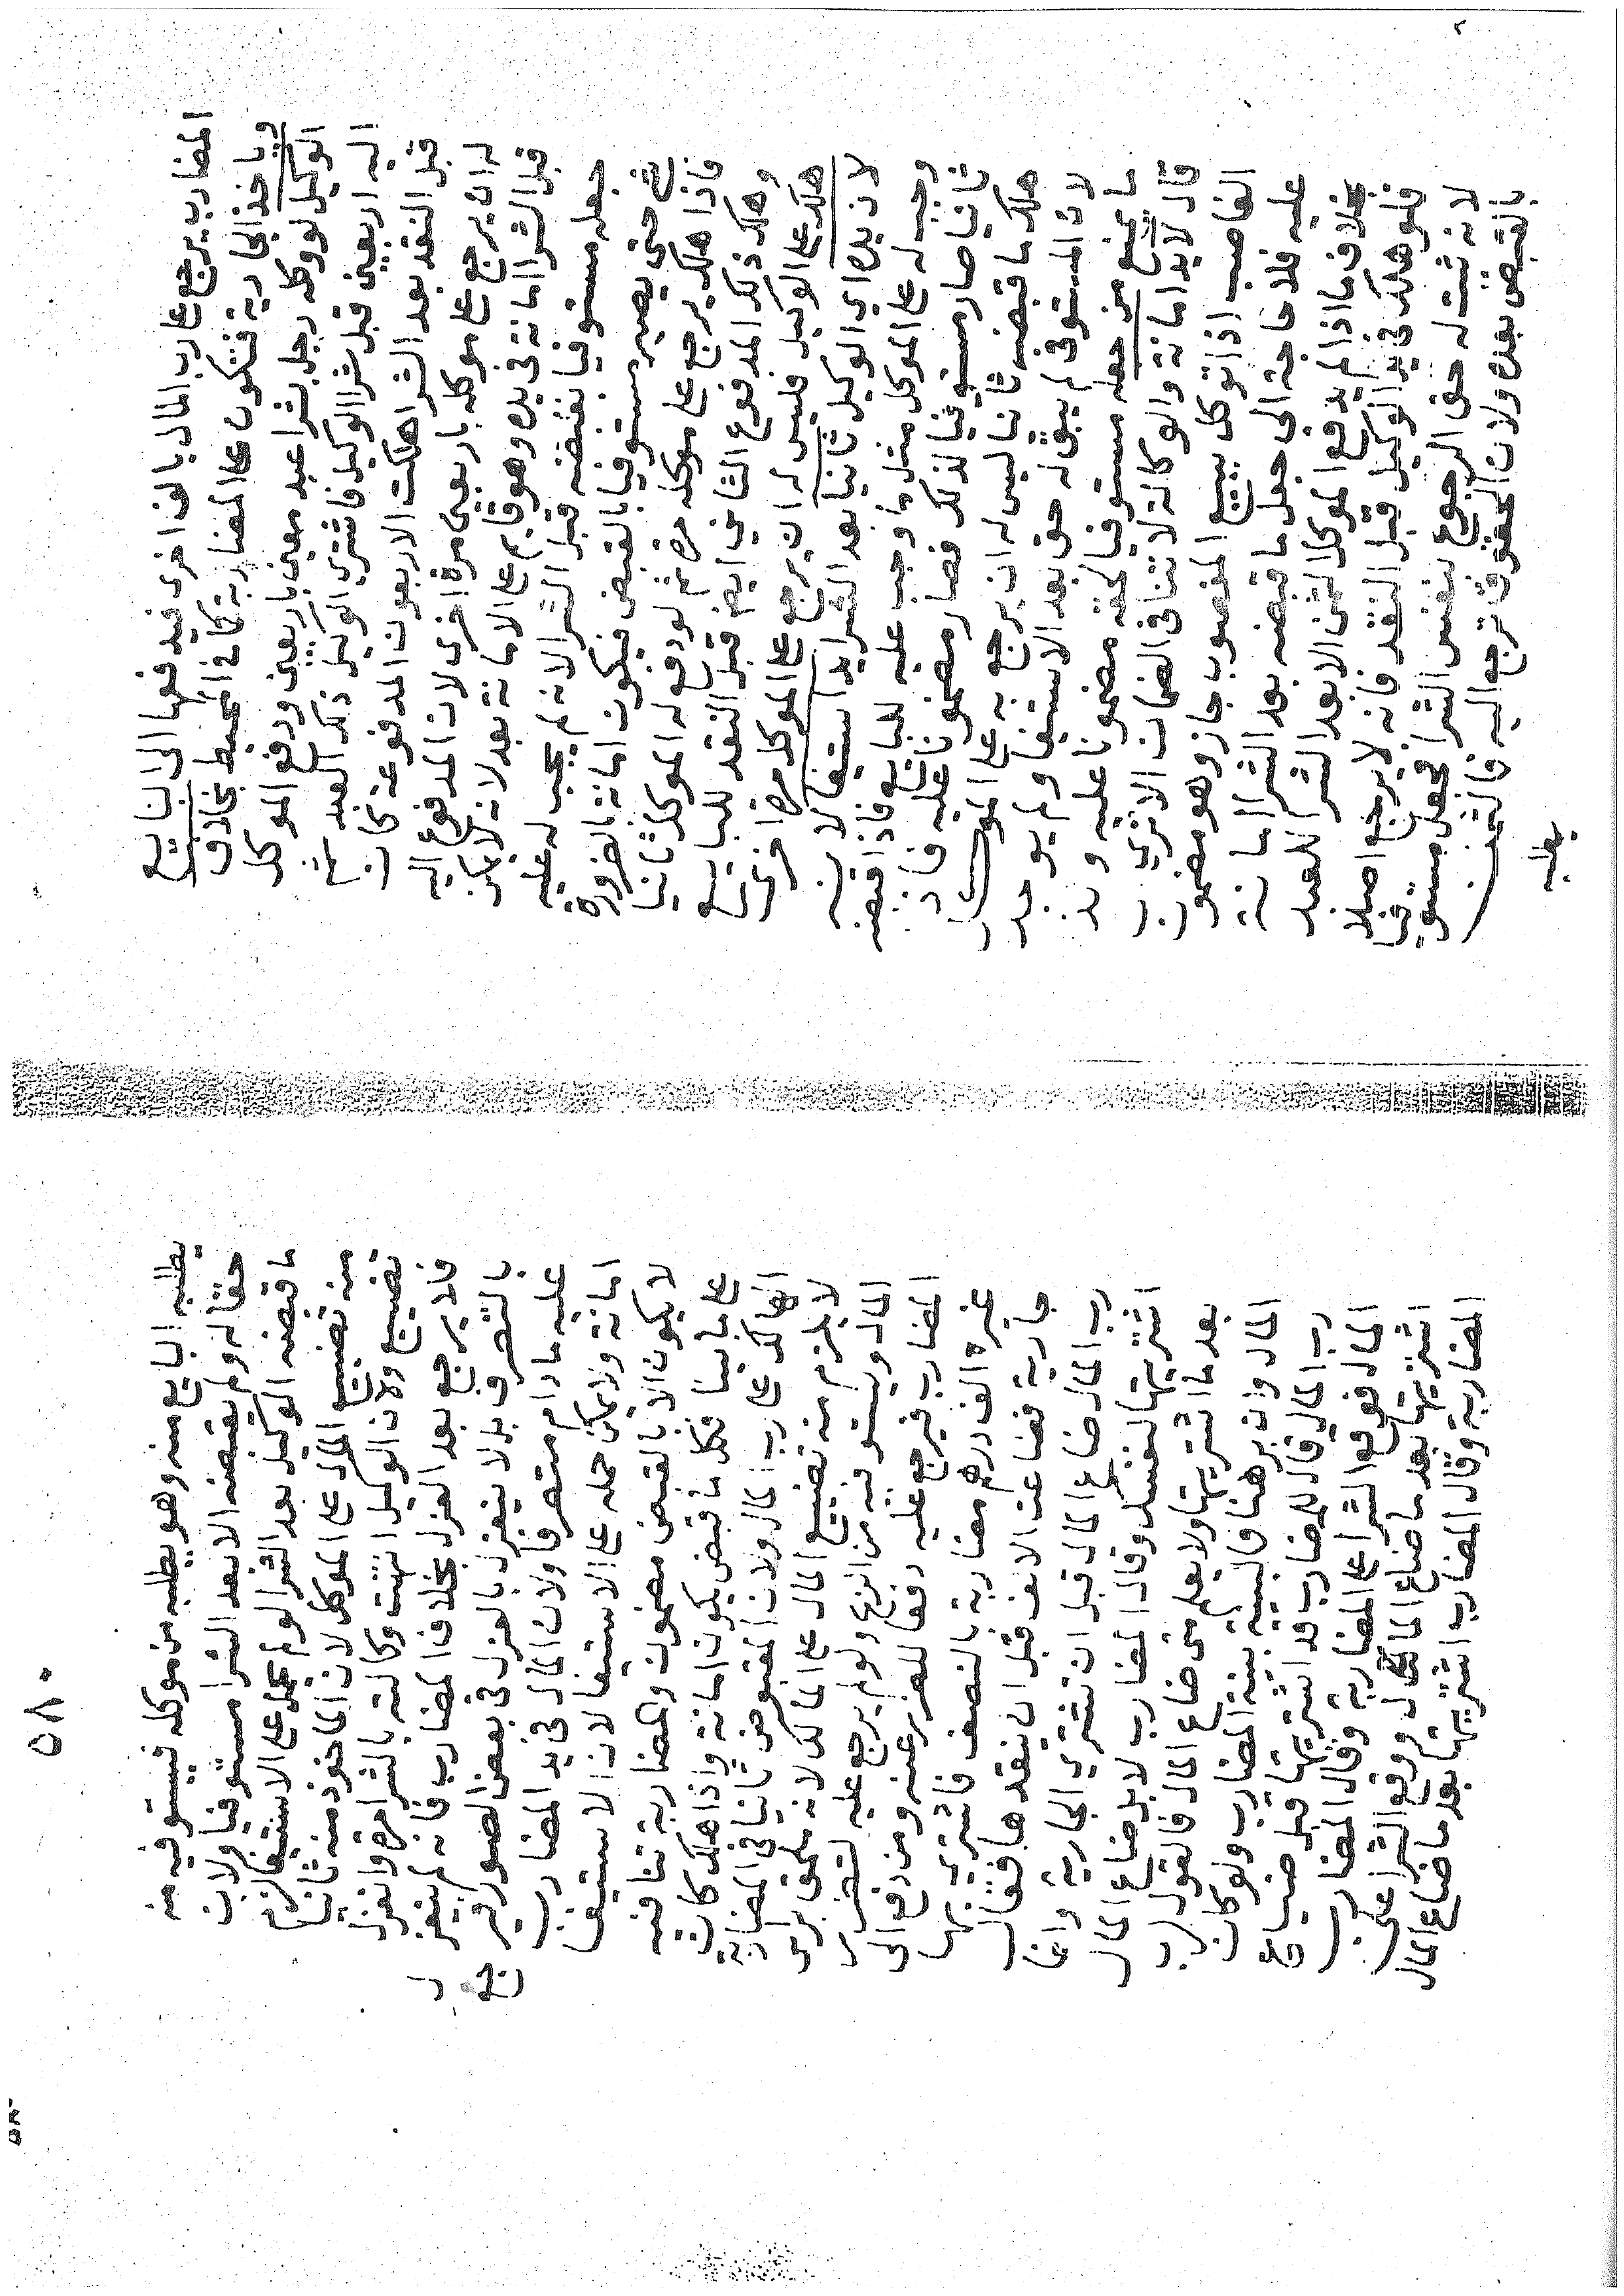 المضارب يرجع على رب المال بالف اخرى فيدفعها الى البايع
وياخذ الجارية فتكون على المضاربة كما في المحيط بخلاف
الوكيل لو وكله رجل بشرا عبد معين باربعين ودفع الموكل
اليه اربعين قبل شرا الوكيل فاشترى الوكيل ذلك العبد ثم
قبل النقد بعد الشرا هلكت الاربعون المدفوعة كان
له ان يرجع على موكله باربعين مرة اخرى لان المدفوع اليه
قبل الشرا امانة في يده وهو قايم على الامانة بعد لانه لا يمكن
جعله مستوفيا بقبضه قبل الشرا لانه لم يجب له عليه
شئ حتى يصير مستوفيا بالقبض فيكون امانة بالضرورة
فاذا هلك يرجع على موكله مرة ثم لو دفع له الموكل ثانيا
وهلك ذلك المدفوع الثاني ايضا قبل النقد للبايع
هلك على الوكيل فليس له ان يرجع على الموكل مرة اخرى
لان يده اي الوكيل ثانيا بعد الشرا يد استيفا لانه
وجب له على الموكل مثل ما وجب عليه للبايع فاذا قبضه
ثانيا صار مستوفيا لذلك فصار مضمونا عليه فاذ
هلك ما قبضه ثانيا ليس له ان يرجع به على الموكل
لان المستوفي لم يبق له حق بعد الاستيفا ولم يوجد
ما يمنع من جعله مستوفيا لحقه مضمونا عليه ولا
يقال لايد امانة والوكالة لا تنافى الضمان الا ترى
الغاصب اذا توكل ببيع المغصوب جاز وهو مضمون
عليه فلا حاجة الى جعل ما قبضه بعد الشرا امانة
بخلاف ما اذا لم يدفع الموكل الثمن الا بعد الشرا للعبد
فلو هلك في يد الوكيل قبل النقد فانه لا يرجع اصلا
لانه ثبت له حق الرجوع بنفس الشرا فجعل مستوفيا
بالقبض بعده ولان الحقوق ترجع اليه فالثمن
يطلبه
٥٨٠
يطلبه البايع منه وهو يطلبه من موكله فيستوفيه منه
حقا له ولم يقبضه الا بعد الشرا مستوفيا ولان
ما قبضه الوكيل بعد الشرا لو لم يحمل على الاستيفا لزم
منه تضييع المال على الموكل لان الماخوذ منه ثانيا
تضييع ولان الوكيل انتهت وكالته بالشرا مرة وانعزل
فلا يرجع بعد العزل بخلاف المضارب فانه لم ينعزل
بالتصرف بل لا ينعزل بالعزل في بعض الصور فيرجع
عليه ما دام متصرفا ولان المال في يد المضارب
امانة ولا يمكن حمله على الاستيفا لان الاستيفا
لا يكون الا بالقبض مضمون والمضاربة تنافيه
على ما بينا فكل ما قبض يكون امانة واذا هلك كان
الهالك على رب المال ولان المقبوض ثانيا في المضاربة
لا يلزم منه تضييع المال على المالك لانه ملحق براس
المال ويستوفيه من الربح ولو لم يرجع عليه لتضرر
المضارب فيرجع عليه دفعا للضرر عنه ومن دفع الى
غيره الف درهم مضاربة بالنصف فاشترى بها
جارية فضاعت الالف قبل ان ينقدها فقال
رب المال ضاع المال قبل ان تشتري الجارية وانما
اشتريتها لنفسك وقال المضارب لا بل ضاع المال
بعد ما اشتريتها ولا يعلم متى ضاع المال فالقول لرب
المال وان برهنا فالبينة بينة المضارب ولو كان
رب المال قال للمضارب قد اشتريتها قبل ضياع
المال فوقع الشرا على المضاربة وقال المضارب
اشتريتها بعد ما ضاع المال ووقع الشرا على
المضاربة وقال المضارب اشتريتها بعد ما ضاع المال